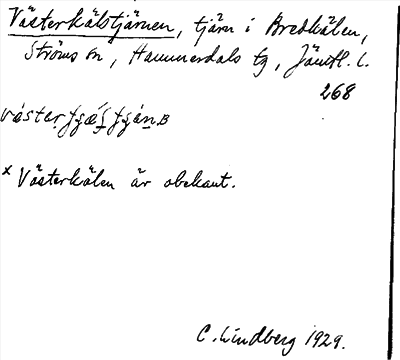 Västerkälstjärnen, tjärn i Bredkälen,
Ströms sn, Hammerdals tg, Jämtl. l.
268
x Västerkälen är obekant.
C. Lindberg 1929.